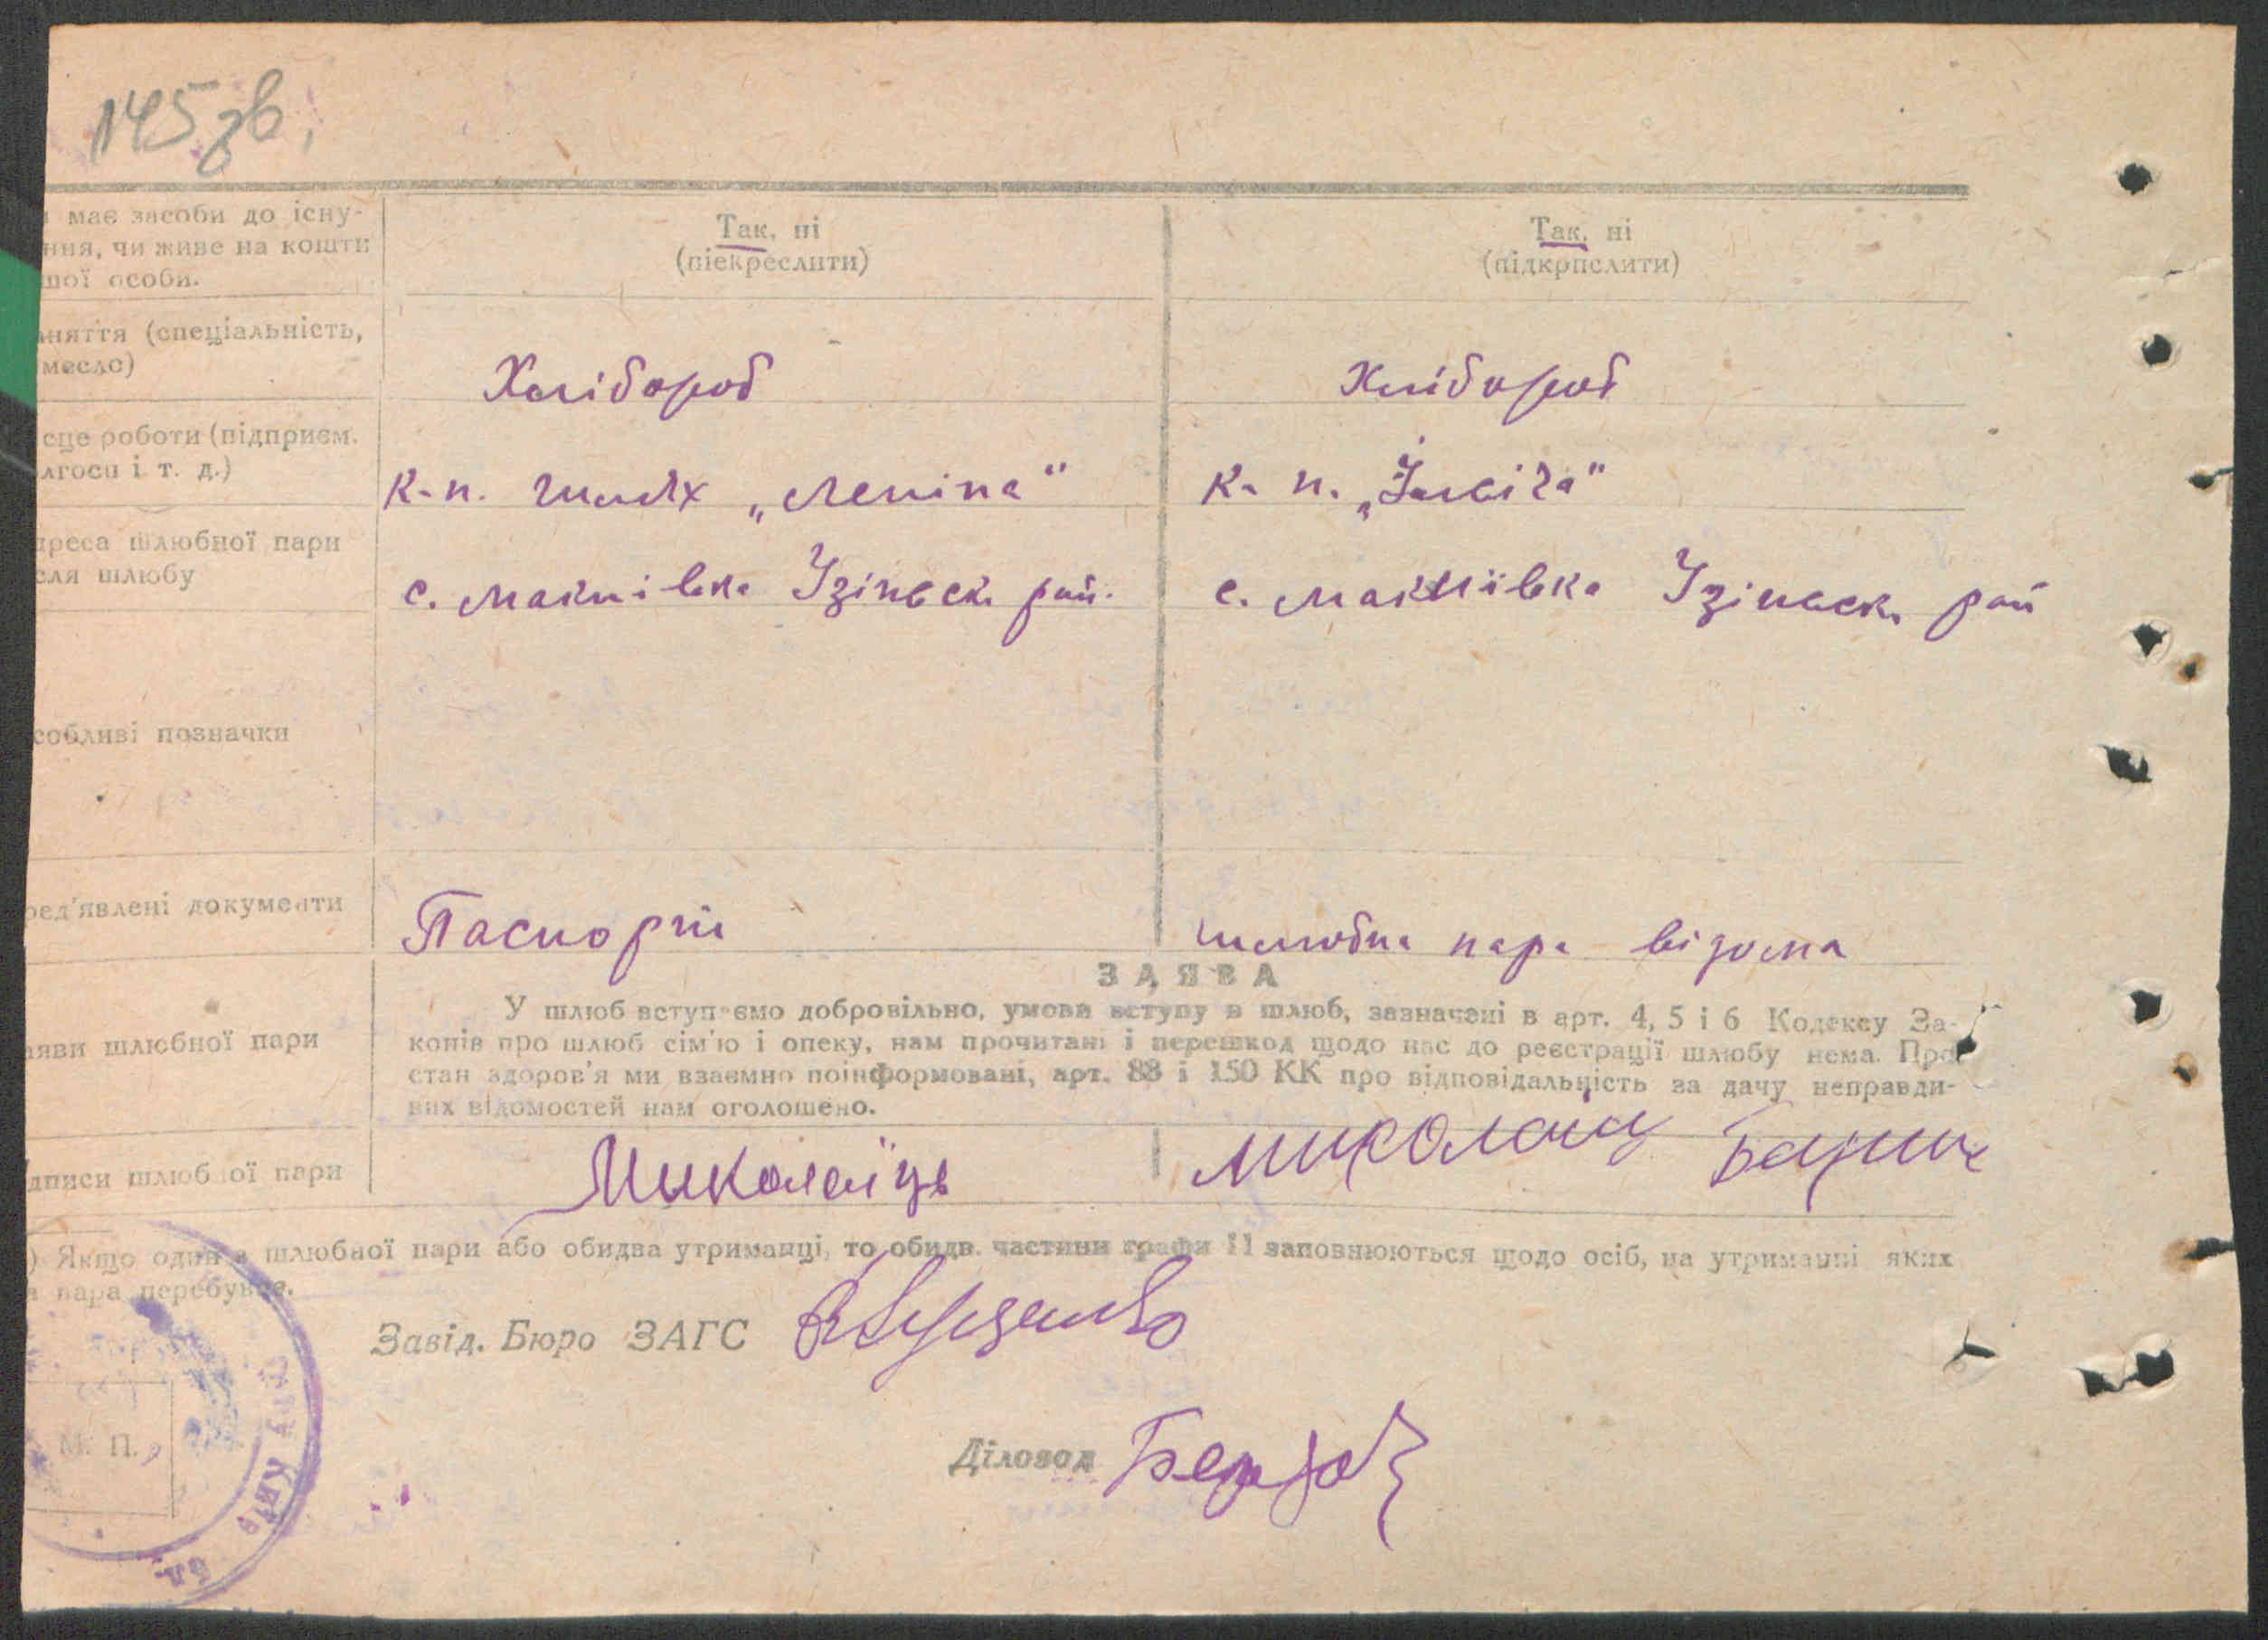 145 зв,
має засоби до існу-
ння, чи живе на кошти
шої особи.
Так, ні
(піекреслити)
Так, ні
(підкрпслити)
няття (спеціальність,
месло)
Хлібороб
Хлібороб
сце роботи (підприєм.
лгосп і т. д.)
к-п. шлях „Леніна"
к-п. „Ілліча"
дреса шлюбної пари
сля шлюбу
с. Макіївка Узінськ рай.
с. Макіївка Узінськ рай
собливі позначки
ред'явлені документи
Паспорт
шлюбна пара відома
ЗАЯВА
яви шлюбної пари
У шлюб вступаємо добровільно, умови вступу в шлюб, зазначені в арт. 4, 5 і 6 Кодексу За-
конів про шлюб сім'ю і опеку, нам прочитані і перешкод щодо нас до реєстрації шлюбу нема. Про
стан здоров'я ми взаємно поінформовані, арт. 88 і 150 КК про відповідальність за дачу неправди-
вих відомостей нам оголошено.
дписи шлюбної пари
Миколаїць
Миколаиц
) Якщо один з шлюбної пари або обидва утриманці, то обидв. частини графи 11 заповнюються щодо осіб, на утриманні яких
пара перебуває.
Завід. Бюро ЗАГС
М. П.
Діловод